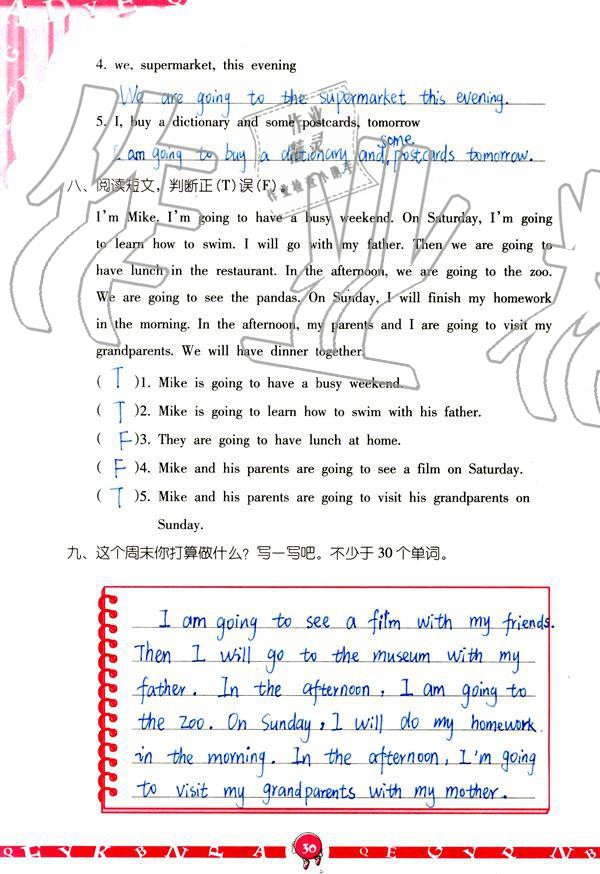 4. we, supermarket, this evening
We are going to the supermarket this evening.
5. I, buy a dictionary and some postcards, tomorrow
some
I am going to buy a dictionary and postcards tomorrow.
八、阅读短文,判断正(T)误(F)。
I'm Mike. I'm going to have a busy weekend. On Saturday, I'm going
to learn how to swim. I will go with my father. Then we are going to
have lunch in the restaurant. In the afternoon, we are going to the zoo.
We are going to see the pandas. On Sunday, I will finish my homework
in the morning. In the afternoon, my parents and I are going to visit my
grandparents. We will have dinner together.
( T )1. Mike is going to have a busy weekend.
( T )2. Mike is going to learn how to swim with his father.
( F )3. They are going to have lunch at home.
( F )4. Mike and his parents are going to see a film on Saturday.
( T )5. Mike and his parents are going to visit his grandparents on
Sunday.
九、这个周末你打算做什么?写一写吧。不少于 30 个单词。
I am going to see a film with my friends.
Then I will go to the museum with my
father. In the afternoon, I am going to
the zoo. On Sunday, I will do my homework
in the morning. In the afternoon, I'm going
to visit my grandparents with my mother.
30